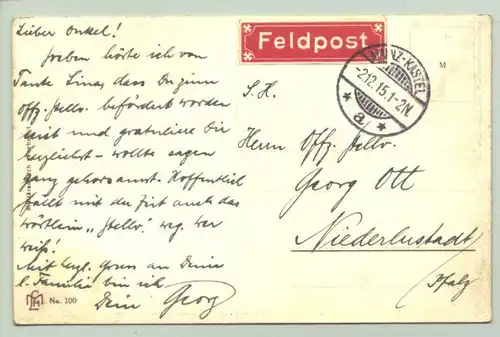 Lieber Onkel!
soeben hörte ich von
Tante Lina, dass Du zum
Offz. Stellv. befördert worden
seist und gratuliere Dir
herzlichst – wollte sagen
ganz gehorsamst. Hoffentlich
fällt mit der Zeit auch das
wörtlein „Stellv." weg. wer
weiß!
Mit herzl. Gruss an Deine
l. Familie bin ich
Dein Georg
No. 100
Feldpost
MAINZ-KASTEL
-2.12.15.1-2N.
* a *
M
S. H.
Herrn Offz. Stellv.
Georg Ott
Niederlustadt
Pfalz